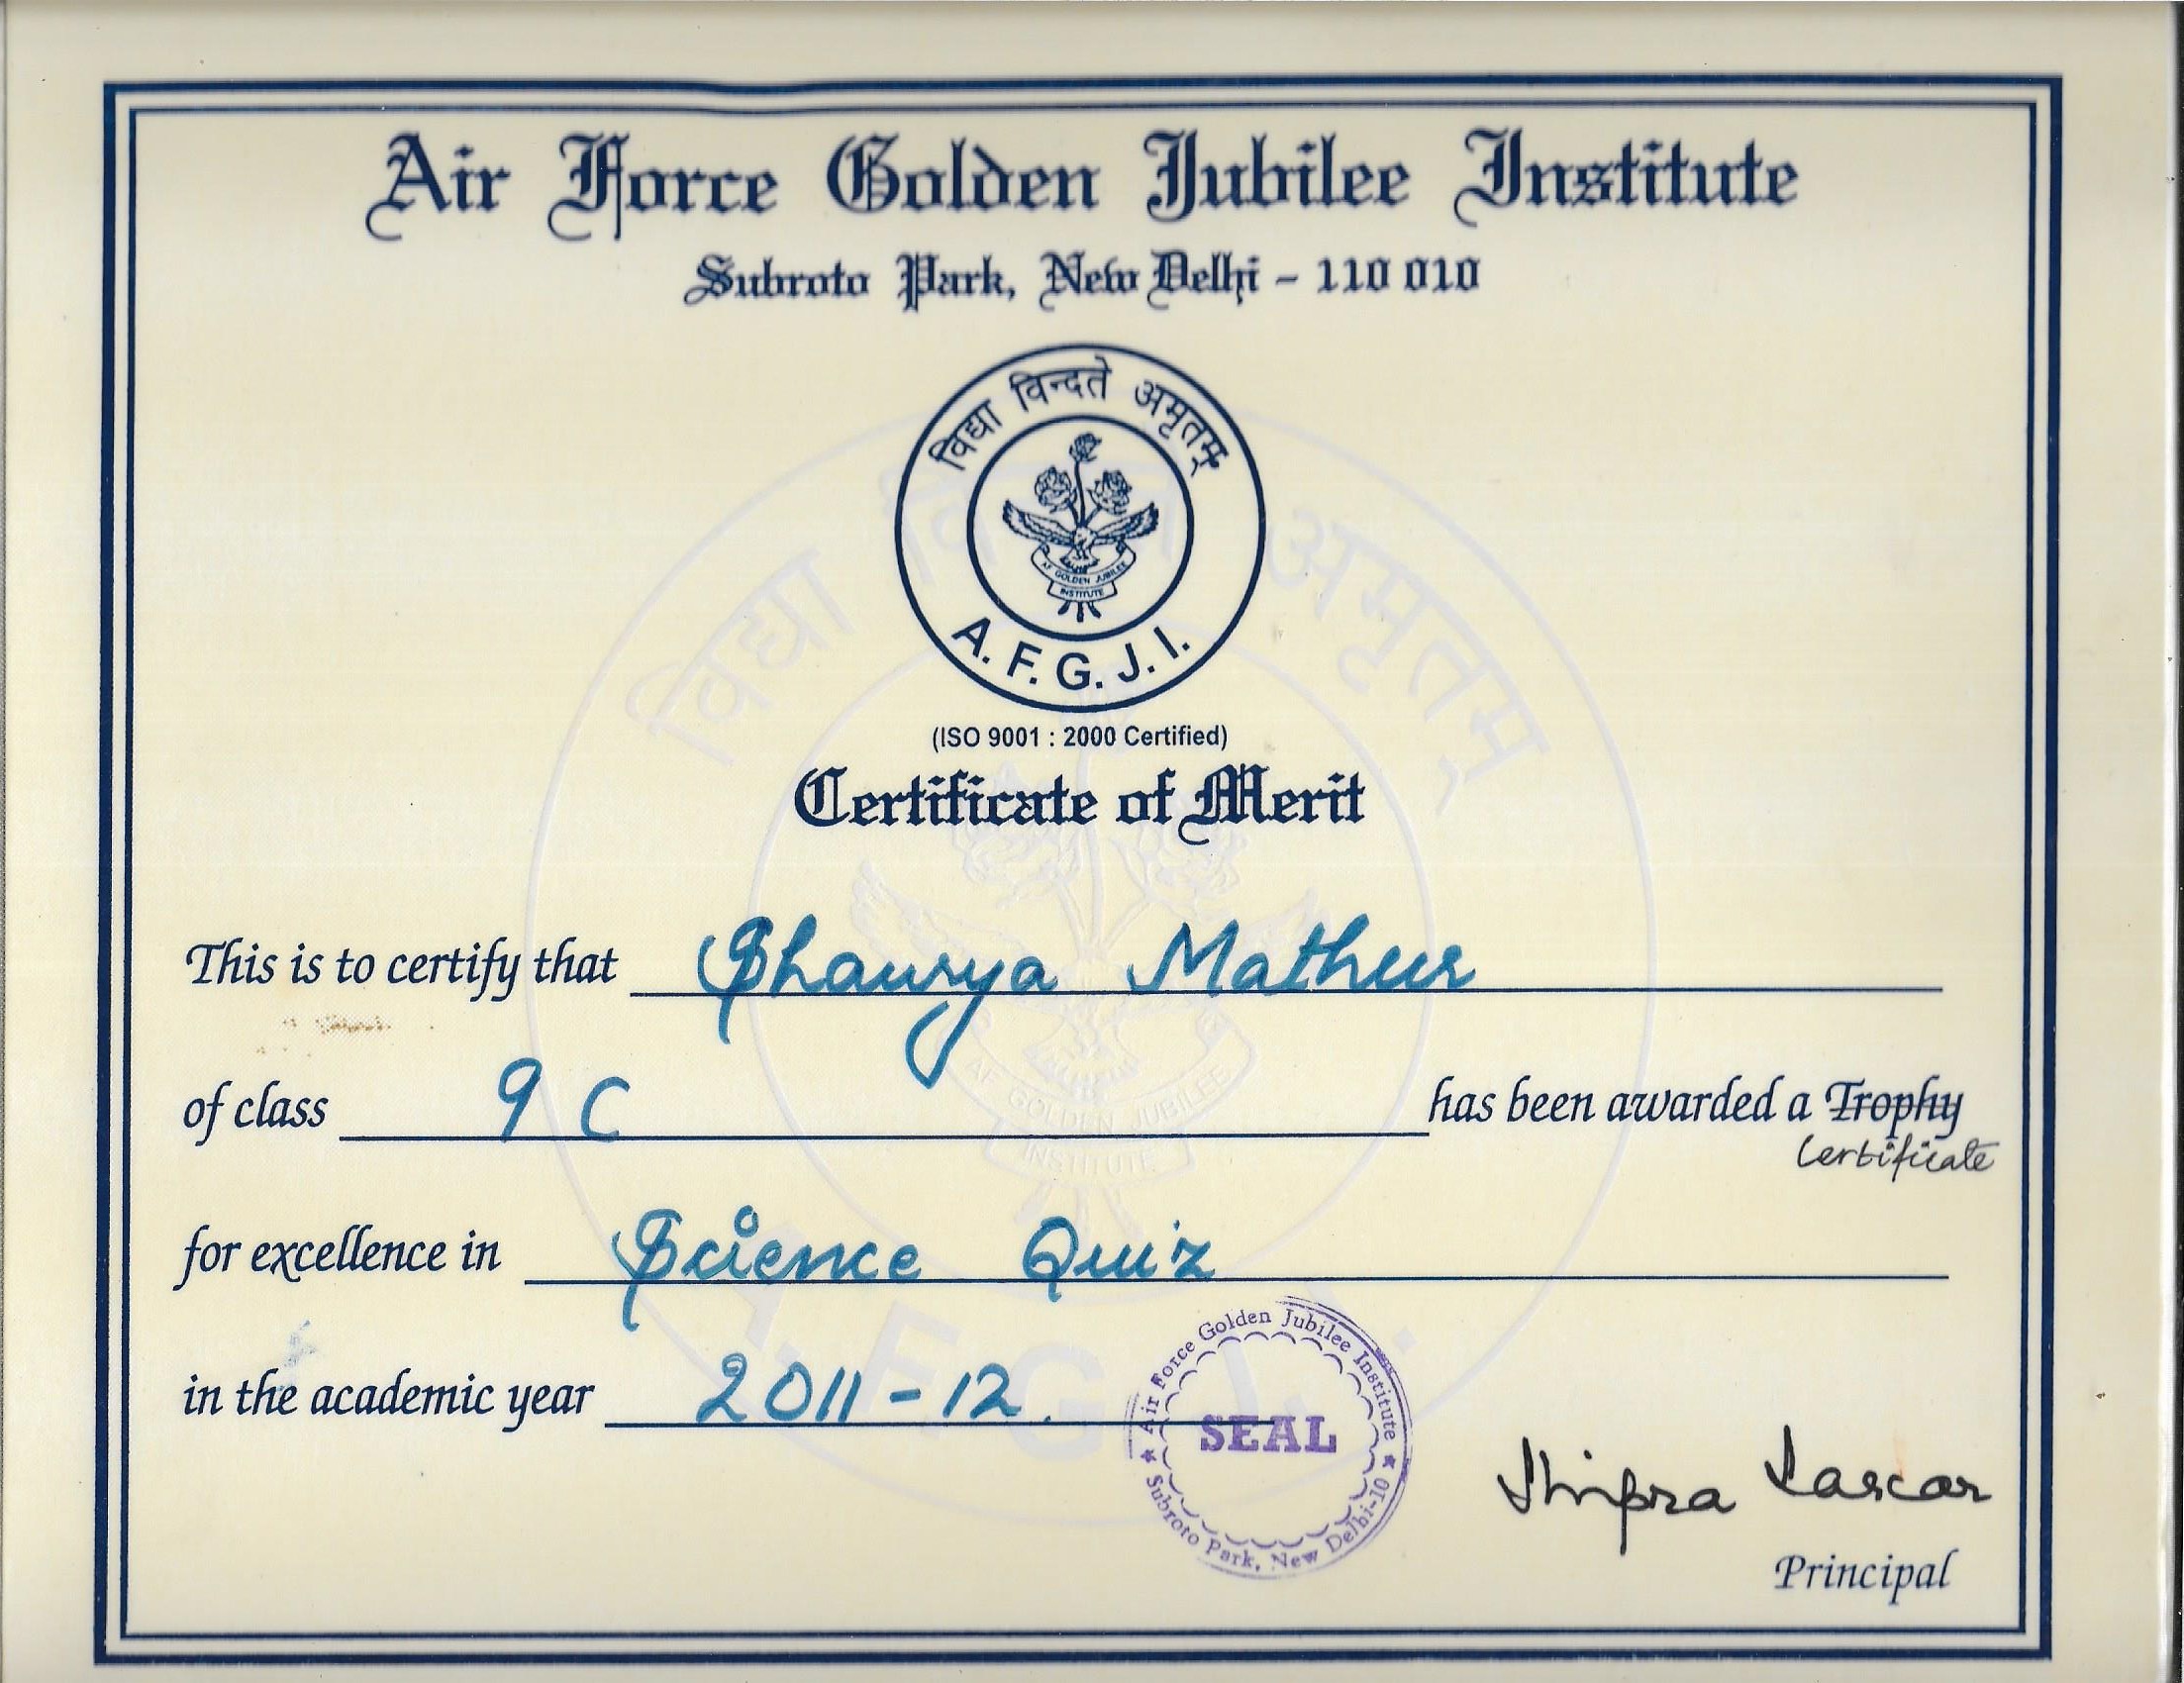 Air Force Golden Jubilee Institute
Subroto Park, New Delhi - 110 010
विद्या विन्दते अमृतम्
AF GOLDEN JUBILEE
INSTITUTE
A. F. G. J. I.
(ISO 9001 : 2000 Certified)
Certificate of Merit
This is to certify that Shaurya Mathur
of class 9 C has been awarded a Trophy
Certificate
for excellence in Science Quiz
in the academic year 2011-12.
Air Force Golden Jubilee Institute
SEAL
Subroto Park, New Delhi-10
Shipra Sarcar
Principal